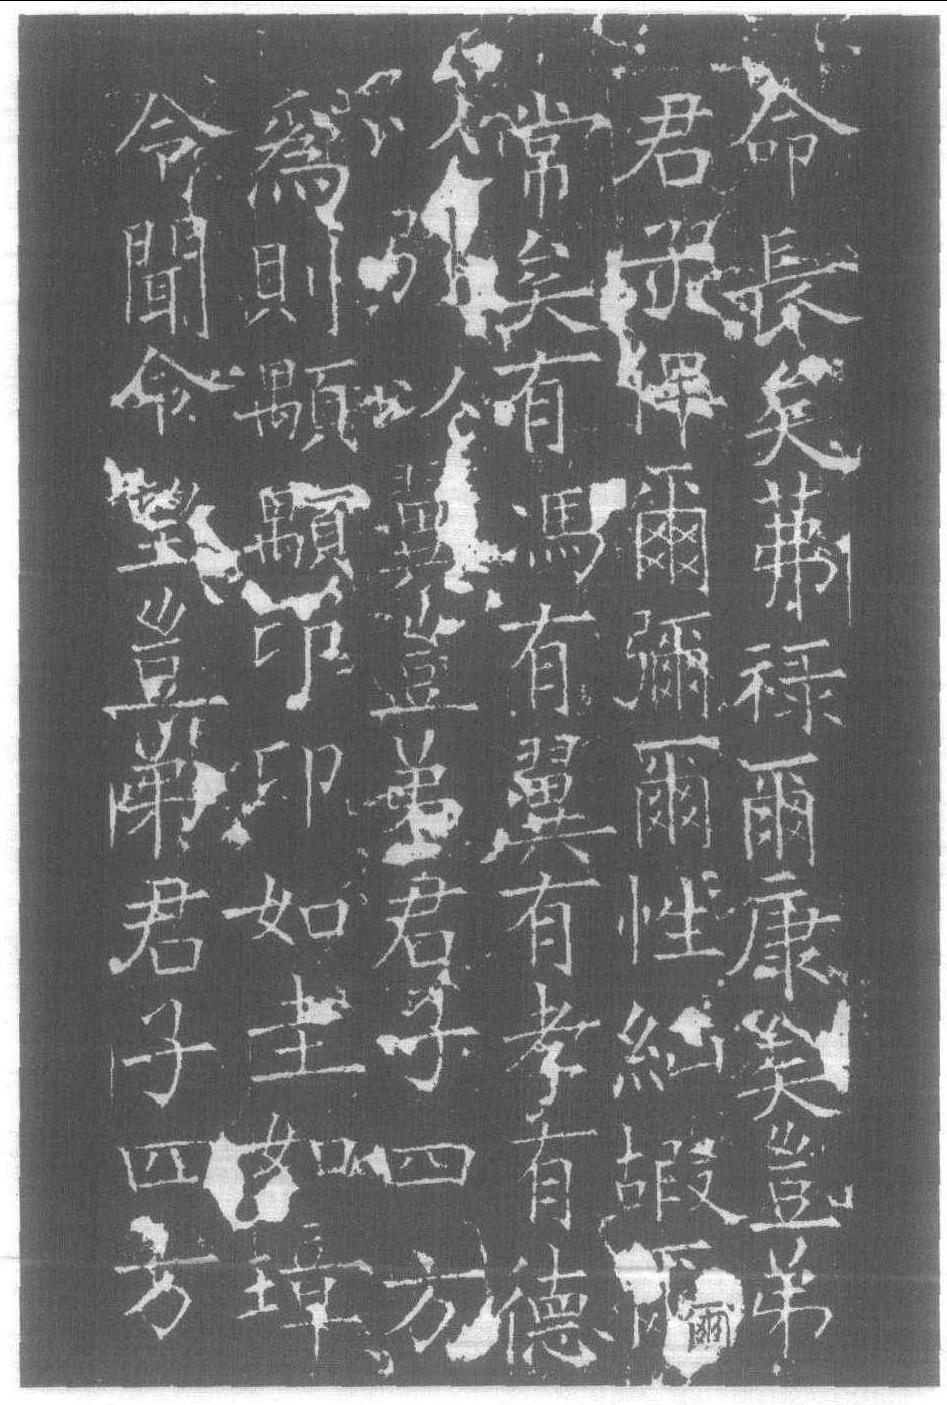 命長矣茀祿爾康矣豈弟
君子俾爾彌爾性純嘏爾爾
常矣有馮有翼有孝有德
以引以翼豈弟君子四方
爲則顒顒卬卬如圭如璋
令聞令望豈弟君子四方